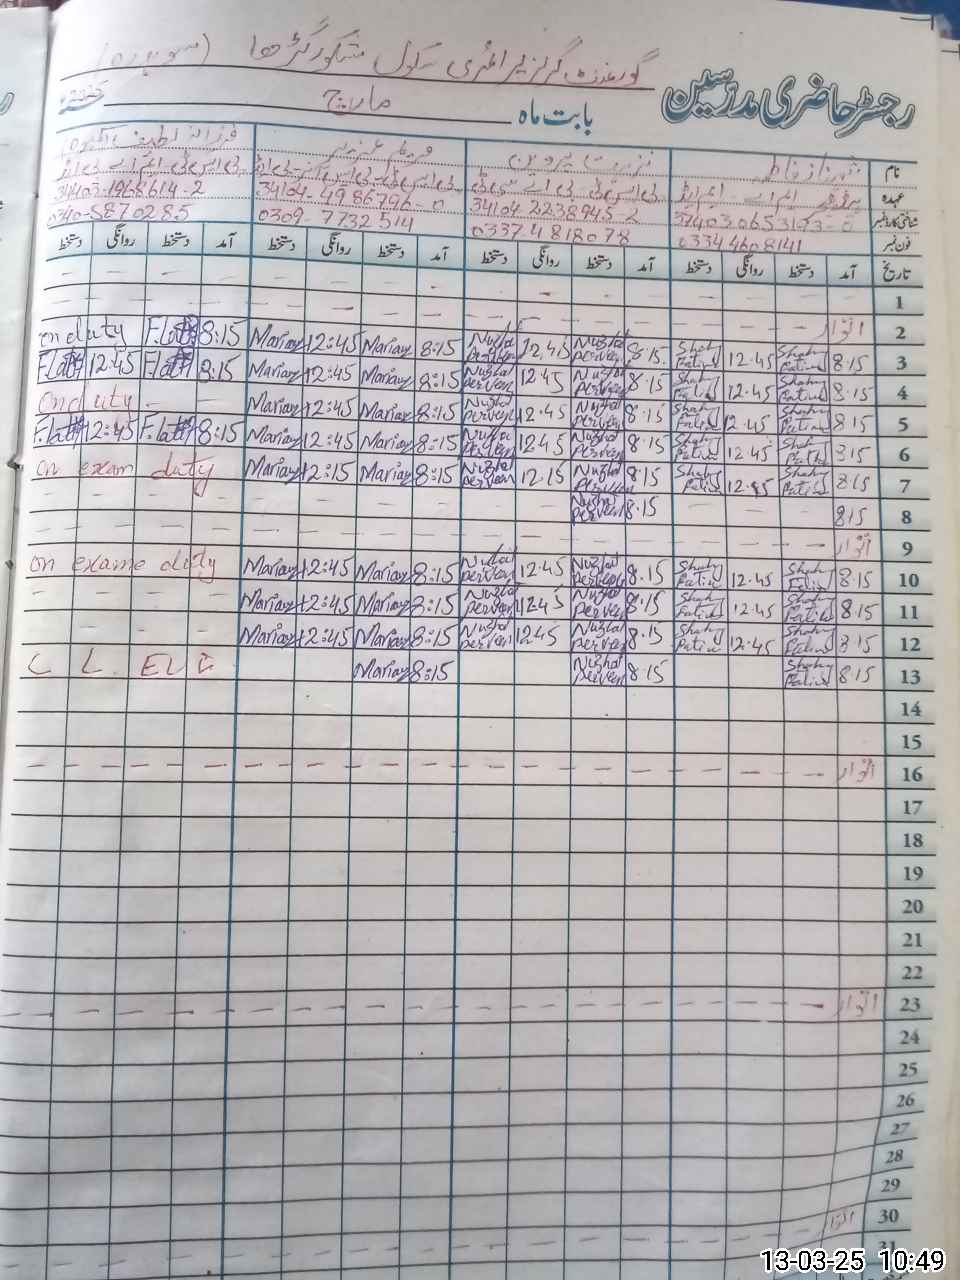 گورنمنٹ گرلز پرائمری سکول شکور گڑھا (سوہدرہ)
رجسٹر حاضری مدرسین
بابت ماہ مارچ 2025
نام شہناز فاطمہ نزہت پروین مریم عزیز فرزانہ لطیف
عہدہ
شناختی کارڈ نمبر 34104-2238945-2 34104-4986796-0 34403-1968614-2
فون نمبر 0334 4608141 0337-4818078 0309-7732514 0340-5870285
تاریخ آمد دستخط روانگی دستخط آمد دستخط روانگی دستخط آمد دستخط روانگی دستخط آمد دستخط روانگی دستخط
1
2 اتوار
3 8:15 Shahn Fatima 12:45 Shahn Fatima 8:15 Nuzhat Perveen 12:45 Nuzhat Perveen 8:15 Mariam 12:45 Mariam 8:15 F.Latif on duty
4 8:15 Shahn Fatima 12:45 Shahn Fatima 8:15 Nuzhat Perveen 12:45 Nuzhat Perveen 8:15 Mariam 12:45 Mariam 8:15 F.Latif 12:45 F.Latif
5 8:15 Shahn Fatima 12:45 Shahn Fatima 8:15 Nuzhat Perveen 12:45 Nuzhat Perveen 8:15 Mariam 12:45 Mariam On duty
6 8:15 Shahn Fatima 12:45 Shahn Fatima 8:15 Nuzhat Perveen 12:45 Nuzhat Perveen 8:15 Mariam 12:45 Mariam 8:15 F.Latif 12:45 F.Latif
7 8:15 Shahn Fatima 12:45 Shahn Fatima 8:15 Nuzhat Perveen 12:15 Nuzhat Perveen 8:15 Mariam 12:15 Mariam on exam duty
8 8:15 8:15 Nuzhat Perveen
9 اتوار
10 8:15 Shahn Fatima 12:45 Shahn Fatima 8:15 Nuzhat Perveen 12:45 Nuzhat Perveen 8:15 Mariam 12:45 Mariam on exame duty
11 8:15 Shahn Fatima 12:45 Shahn Fatima 8:15 Nuzhat Perveen 12:45 Nuzhat Perveen 8:15 Mariam 12:45 Mariam
12 8:15 Shahn Fatima 12:45 Shahn Fatima 8:15 Nuzhat Perveen 12:45 Nuzhat Perveen 8:15 Mariam 12:45 Mariam
13 8:15 Shahn Fatima 8:15 Nuzhat Perveen 8:15 Mariam C L
14
15
16 اتوار
17
18
19
20
21
22
23 اتوار
24
25
26
27
28
29
30 اتوار
31
13-03-25 10:49